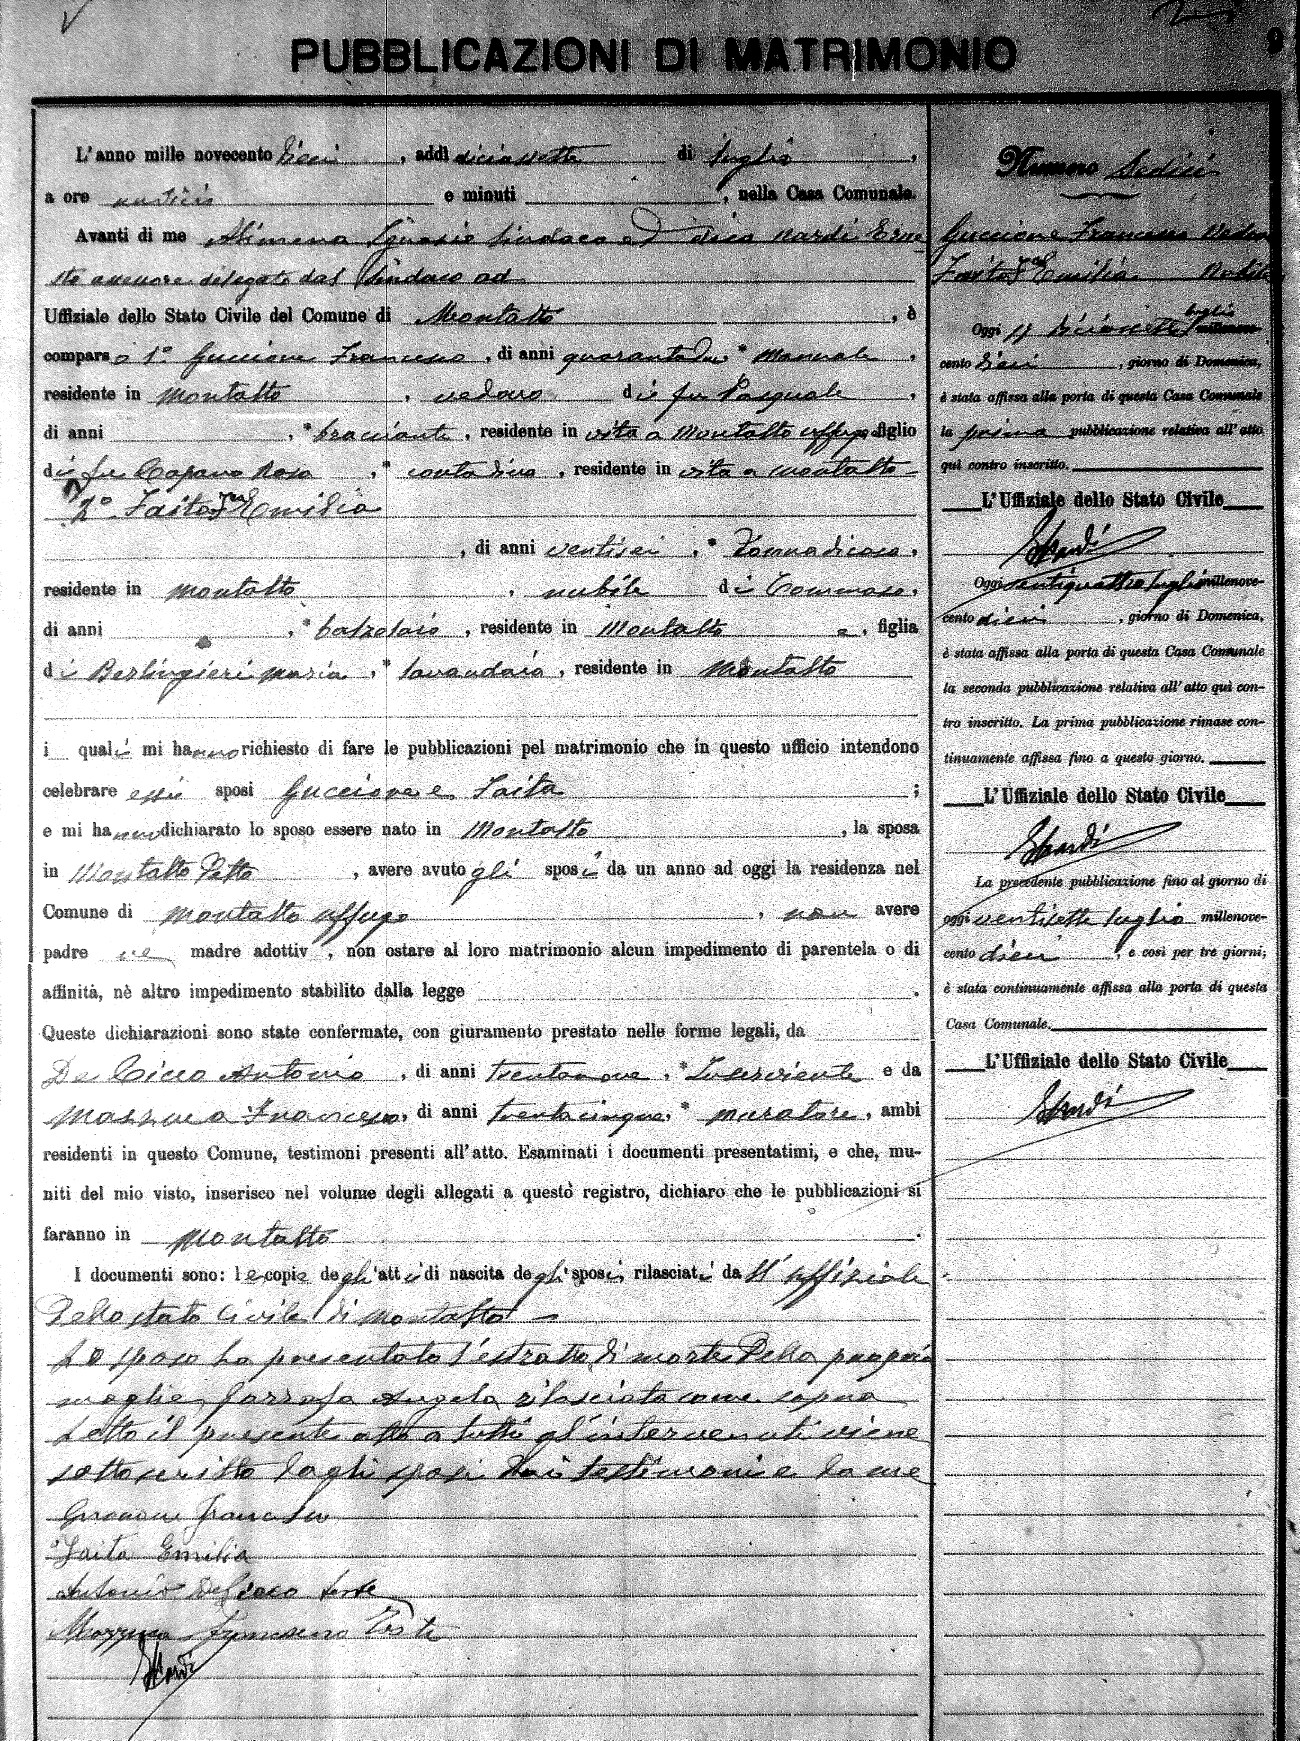 PUBBLICAZIONI DI MATRIMONIO
9
L'anno mille novecento dieci, addì diciassette di luglio,
a ore undici e minuti , nella Casa Comunale.
Avanti di me Alimena Ignazio Sindaco ed dica Nardi Erne
sto assessore delegato dal Sindaco ad
Uffiziale dello Stato Civile del Comune di Montalto , è
compars o 1° Guccione Francesco, di anni quarantadue * Manuale,
residente in Montalto, vedovo di fu Pasquale,
di anni , * bracciante, residente in vita a Montalto Uffugo figlio
di fu Capano Rosa , * contadina, residente in vita a Montalto
2° Jaita Emilia
, di anni ventisei, * Donnadicasa,
residente in Montalto, nubile di Tommaso,
di anni , * calzolaio, residente in Montalto , figlia
di Berlingieri Maria, * lavandaia, residente in Montalto
i quali mi hanno richiesto di fare le pubblicazioni pel matrimonio che in questo ufficio intendono
celebrare essi sposi Guccione e Jaita ;
e mi hanno dichiarato lo sposo essere nato in Montalto , la sposa
in Montalto Detto , avere avuto gli sposi da un anno ad oggi la residenza nel
Comune di Montalto Uffugo , non avere
padre ne madre adottiv , non ostare al loro matrimonio alcun impedimento di parentela o di
affinità, nè altro impedimento stabilito dalla legge .
Queste dichiarazioni sono state confermate, con giuramento prestato nelle forme legali, da
De Cicco Antonio, di anni trentanove, * Inserviente e da
Mazzuca Francesco, di anni trentacinque, * muratore, ambi
residenti in questo Comune, testimoni presenti all'atto. Esaminati i documenti presentatimi, e che, mu-
niti del mio visto, inserisco nel volume degli allegati a questo registro, dichiaro che le pubblicazioni si
faranno in Montalto .
I documenti sono: le copie degli atti di nascita degli sposi rilasciati da ll'uffiziale
Dello stato Civile di Montalto
Lo sposo ha presentato l'estratto di morte Della propria
moglie Garrafa Angela rilasciata come sopra
Letto il presente atto a tutti gl'intervenuti viene
sottoscritto dagli sposi Dai testimoni e da me
Francesco
Jaita Emilia
Antonio DeCicco teste
Mazzuca Francesco Teste
ENardi
Numero Sedici
Guccione Francesco Vedovo
Jaita Emilia Nubile
Oggi 17 diciassette luglio millenove-
cento dieci, giorno di Domenica,
è stata affissa alla porta di questa Casa Comunale
la prima pubblicazione relativa all'atto
quì contro inscritto.
L'Uffiziale dello Stato Civile
ENardi
Oggi ventiquattro luglio millenove-
cento dieci, giorno di Domenica,
è stata affissa alla porta di questa Casa Comunale
la seconda pubblicazione relativa all'atto quì con-
tro inscritto. La prima pubblicazione rimase con-
tinuamente affissa fino a questo giorno.
L'Uffiziale dello Stato Civile
ENardi
La precedente pubblicazione fino al giorno di
oggi ventisette luglio millenove-
cento dieci, e così per tre giorni;
è stata continuamente affissa alla porta di questa
Casa Comunale.
L'Uffiziale dello Stato Civile
ENardi